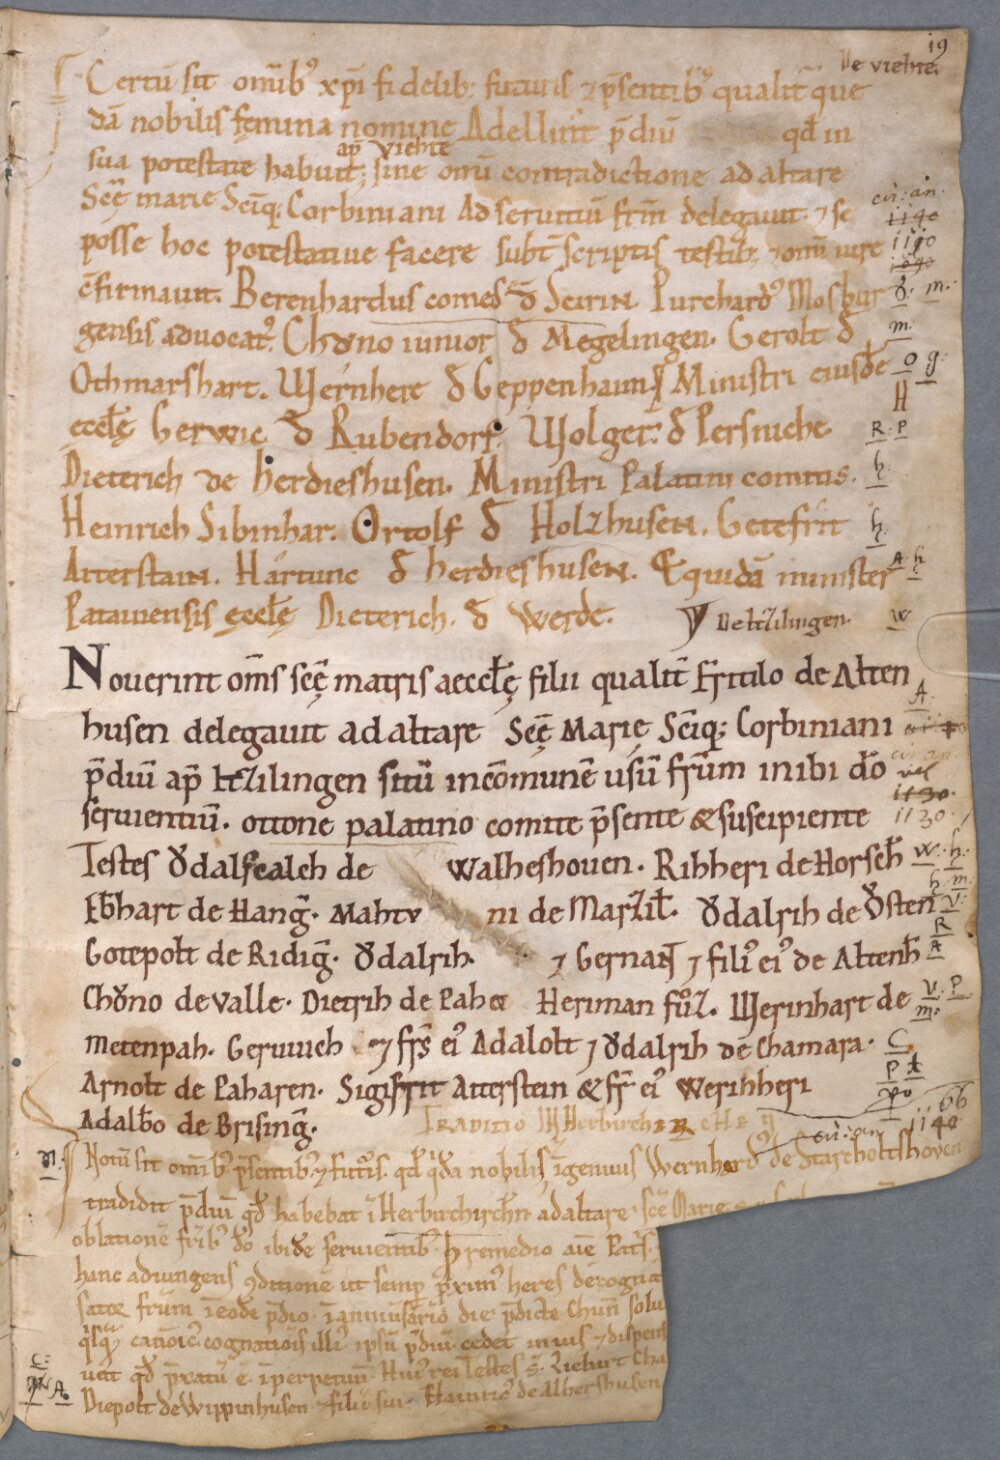 19
De viehte.
Certū sit omīb᷒ xp̄i fidelib; futuris ⁊ p̄sentib᷒ qualit̄ que
dā nobilis femina nomine Adellint p̄diū qd̄ in
ap̄ viehte
sua potestate habuit; sine omī contradictione ad altare
Scē marie Scīq; Corbiniani Ad seruitiū frm̄ delegauit. ⁊ se
cir. an.
1140
posse hoc potestatiue facere subt̄ scriptis testib; ⁊ omī iure
1190
1090
c̄firmauit. Berenhardus comes đ Scirin Purchard᷒ Mosbur
đ. m.
gensis aduocat᷒. Chůno iunior đ Megelingen. Gerolt đ
m.
Othmarshart. Wernhere đ Geppenhaim. Ministri eiusdē
o g.
H
eccłę Gerwic đ Rubendorf. Wolger. đ Persniche
R. P
Dieterich de herdieshusen. Ministri Palatini comitis.
h
Heinrich Sibinhar. Ortolf đ Holzhusen. Getefrit
h
Atterstain. Hartunc đ herdieshusen. Equidā minister
A. h
Patauiensis eccłę Dieterich. đ werde.
De hzilingen.
w
Nouerint om̄s scē matris aeccłę filii qualit̄ Fritilo de Alten
A.
husen delegauit ad altare Scē Marie Scīq; Corbiniani
p̄diū ap̄ hezilingen sitū incōmunē usū fr̄um inibi dō
cir. an.
vel
1130.
seruientiū. ottone palatino comite p̄sente & suscipiente
1130
Testes ŏdalscalch de walheshouen. Rihheri de Horseh̄
w. h.
Eb̄hart de Hanḡ. Mahtv ni de Marzil̄. ŏdalrih de ŏsten
h. m.
v.
Gotepolt de Ridiḡ. ŏdalrih. ⁊ Gernan ⁊ fili᷒ ei᷒ de Altenh̄
R
A
Chŏno de valle. Dietrih de Paha Heriman fůz. Werinhart de
v. P
m.
metenpah. Geruuich ⁊ frs̄ ei᷒ Adalolt ⁊ ŏdalrih de Chamara.
C
Arnolt de Paharen. Sigifrit Atterstein & fr̄ ei᷒ werinheri
P t
Adalb̄o de Brisinḡ.
Traditio
66
cir. an 1140
N.
Notū sit omīb᷒ p̄sentib᷒ ⁊ futur̄is. qd̄ qdā nobilis īgenuus Wernhard᷒ de Starcholtshoven
tradidit p̄diū qd̄ habebat ī Herbirchirch̄n ad altare scē Marie
oblationē frīb᷒ dō ibidē seruientib᷒ p̄ remedio aīe Patr̄s.
hanc adiungens ⁊ditionē ut semp p̄xim᷒ heres de cogna
satoe fr̄um ī eodē p̄dio. ī anniūsario die p̄dicte Chun̄ solu
qsq᷒ canōic᷒ cognatiōis illi᷒ ipsū p̄diū cedet in ius ⁊ dispens
uat qd̄ p̄xatū ē. īperpetuū. Hui᷒ rei Testes s̄. Liehart Cha
C.
Diepolt de Wippinhusen ⁊ filii sui. Hainric᷒ de Albershusen
A.